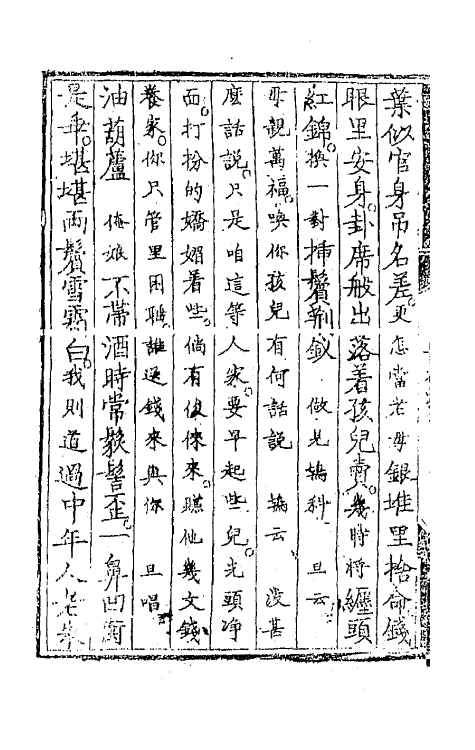 葉似官身吊名差更怎當老母銀堆里捨命錢
眼里安身卦席般出落着孩兒賣幾時將纏頭
紅錦換一對揷鬢荆釵　做見鴇科　旦云
母親萬福喚你孩兒有何話說　鴇云　沒甚
麽話說只是咱這等人家要早起些兒光頭净
面打扮的嬌媚着些倘有俊倈來賺他幾文錢
養家你只管里困𪾶誰送錢來與你　旦唱
油葫蘆　俺娘不帶酒時常鬏髻歪一鼻凹衡
是乖堪堪兩鬢雪霜白我則道過中年人老朱